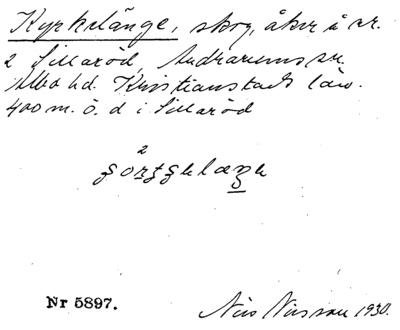 Kyrkelänge, skog, åker å nr.
2 Lillaröd, Andrarums sn.
Albo hd. Kristianstads län.
400 m. ö. d i Lillaröd
2
Nr 5897.
Nils Nilsson 1930.